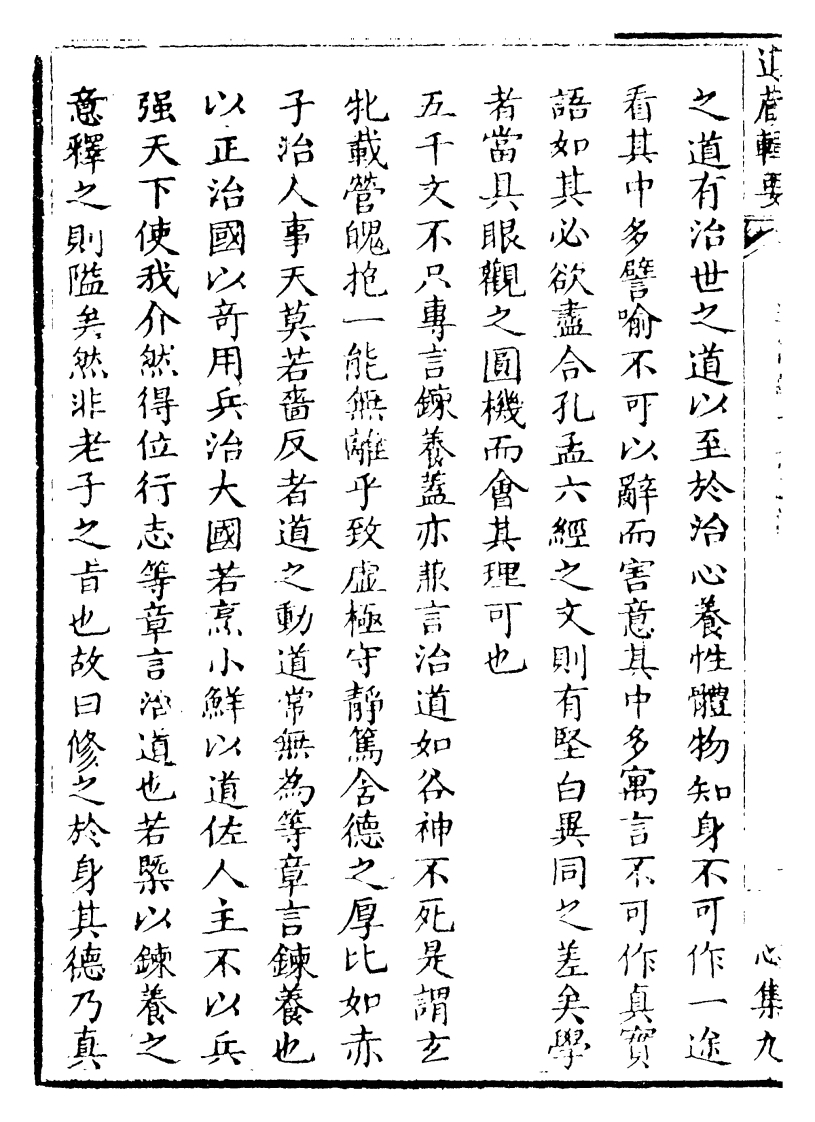 道藏輯要
心集九
之道有治世之道以至於治心養性體物知身不可作一途
看其中多譬喻不可以辭而害意其中多寓言不可作真實
語如其必欲盡合孔孟六經之文則有堅白異同之差矣學
者當具眼觀之圓機而會其理可也
五千文不只專言鍊養蓋亦兼言治道如谷神不死是謂玄
牝載營魄抱一能無離乎致虛極守靜篤含德之厚比如赤
子治人事天莫若嗇反者道之動道常無為等章言鍊養也
以正治國以奇用兵治大國若烹小鮮以道佐人主不以兵
强天下使我介然得位行志等章言治道也若槩以鍊養之
意釋之則隘矣然非老子之旨也故曰修之於身其德乃真